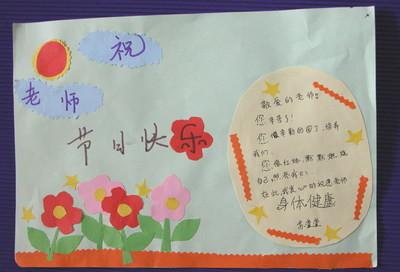 祝
老师
节日快乐
敬爱的老师:
您辛苦了!
您像辛勤的园丁,培育
我们.
您像红烛,默默燃烧
自己,照亮我们.
在此,我衷心的祝愿老师
身体健康